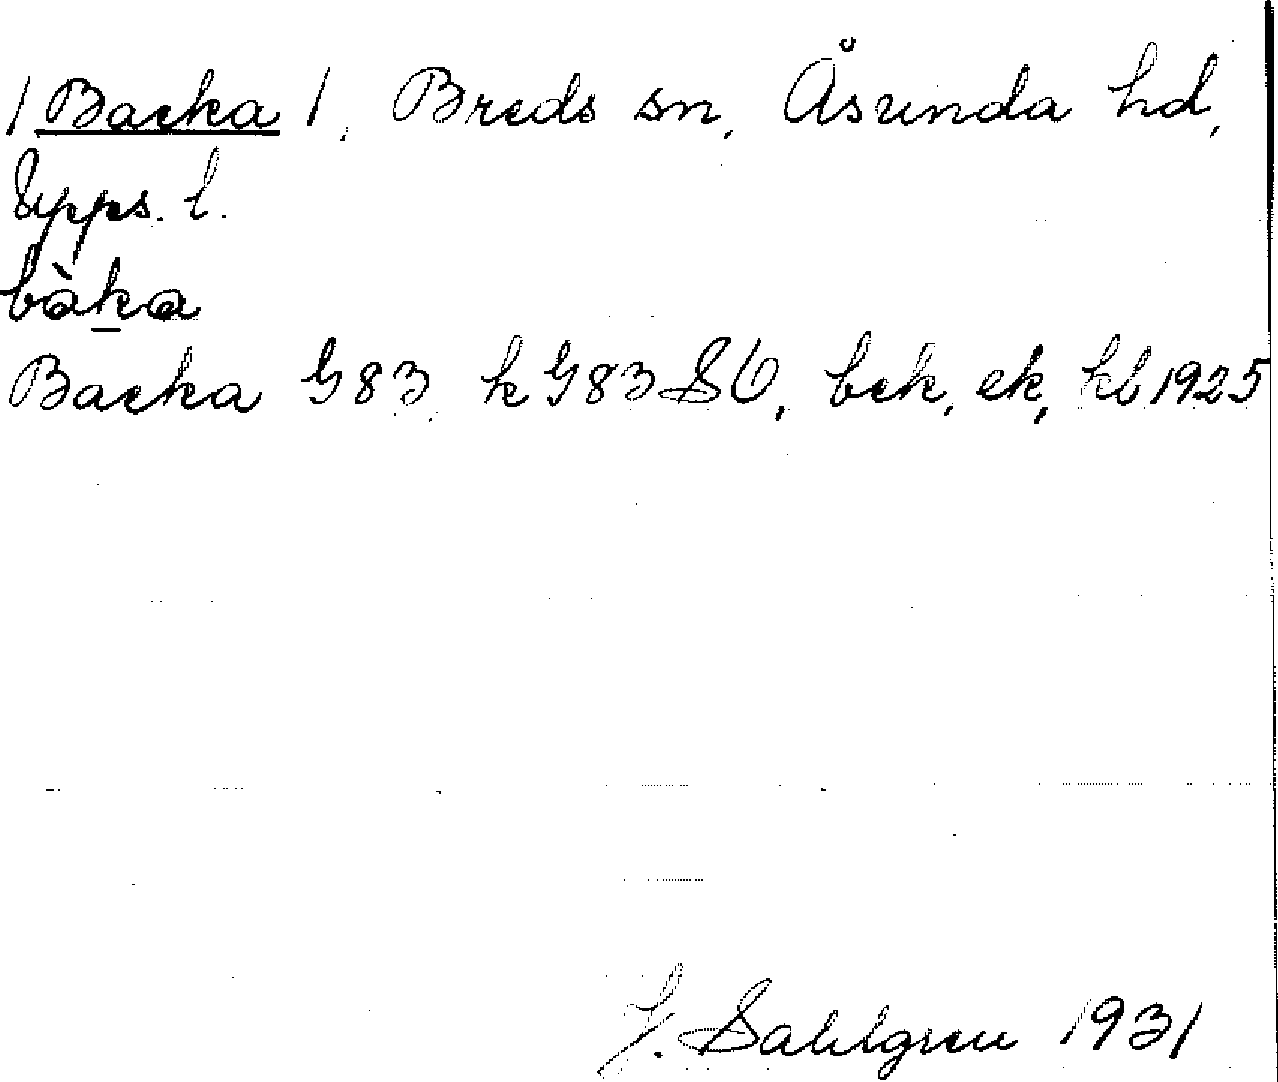 /Backa/, Breds sn, Åsunda hd,
Upps. l.
bàka
Backa G83, k G83 SO, bck, ek, kb 1925
J. Sahlgren 1931